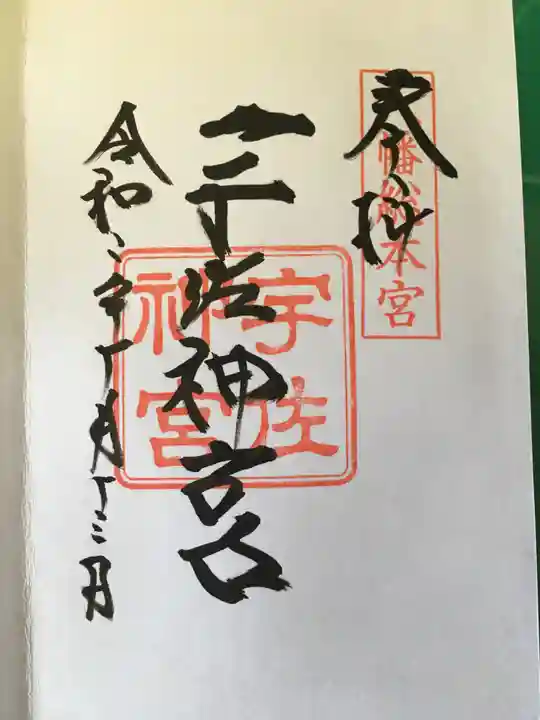 奉拝
八幡総本宮
宇佐神宮
宇佐神宮
令和二年十一月十三日